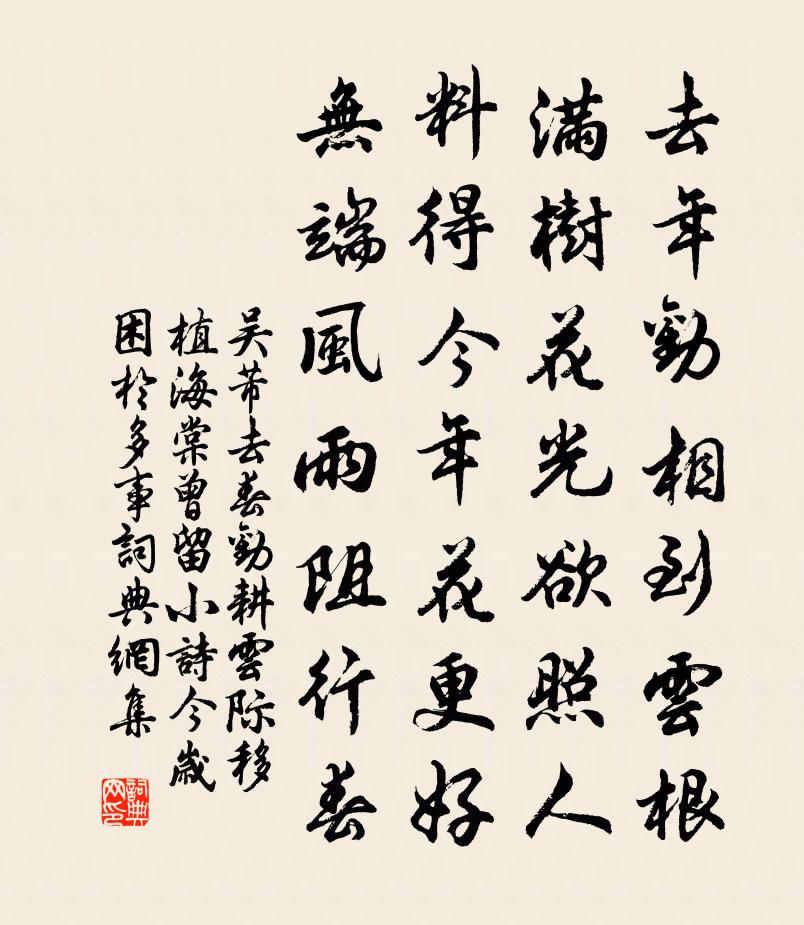 去年勸相到雲根
滿樹花光欲照人
料得今年花更好
無端風雨阻行春
吴芾去春勸耕雲际移
植海棠曾留小詩今歲
困於多事詞典網集
詞典网印